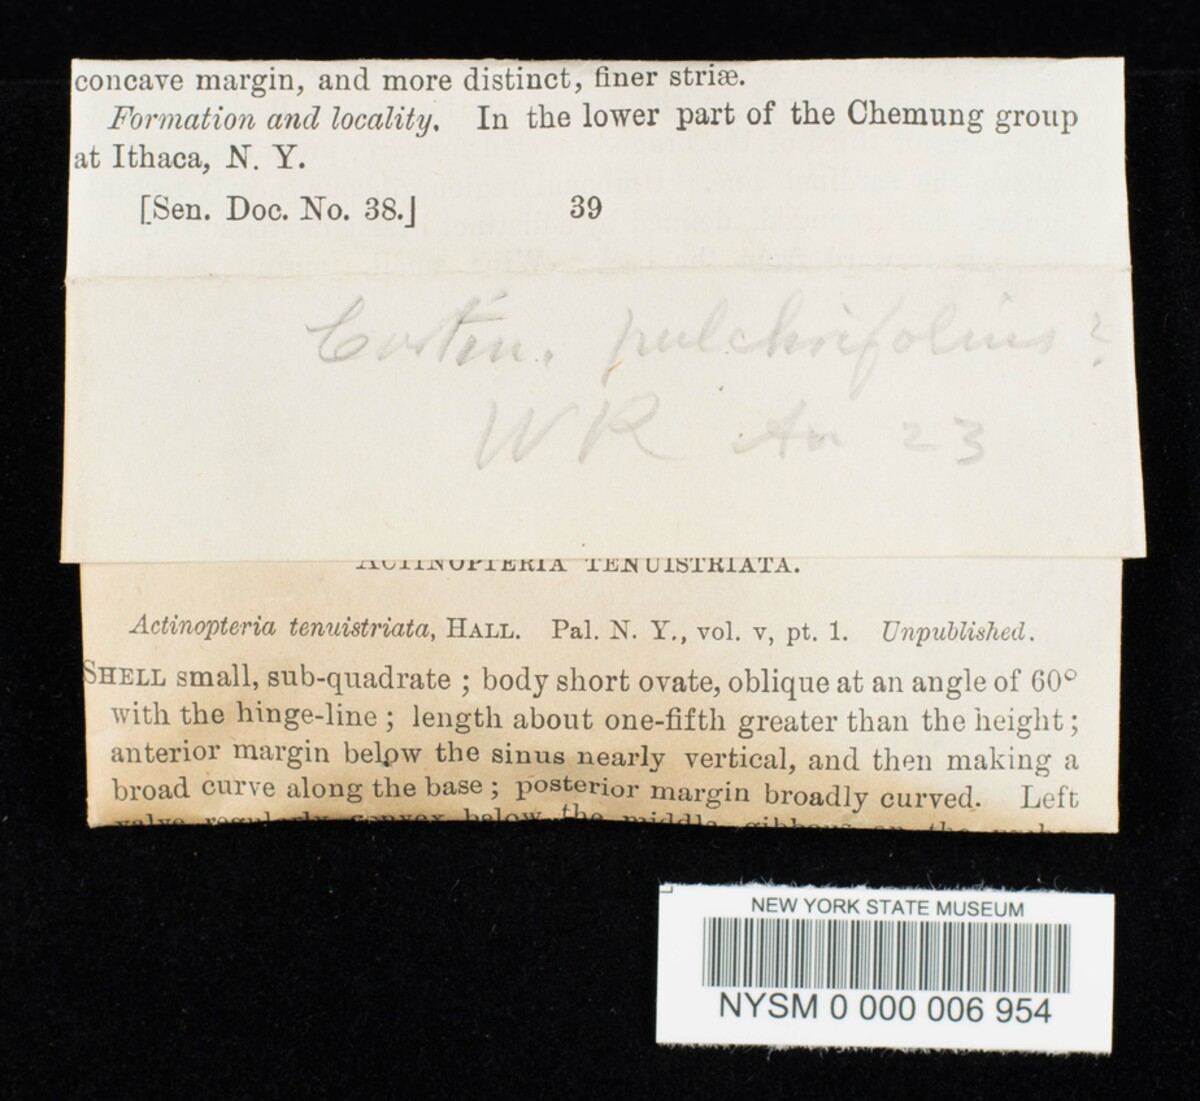 concave margin, and more distinct, finer striæ.
Formation and locality. In the lower part of the Chemung group
at Ithaca, N. Y.
[Sen. Doc. No. 38.] 39
Cortin. pulchrifolius?
WR Au 23
ACTINOPTERIA TENUISTRIATA.
Actinopteria tenuistriata, HALL. Pal. N. Y., vol. v, pt. 1. Unpublished.
SHELL small, sub-quadrate ; body short ovate, oblique at an angle of 60°
with the hinge-line ; length about one-fifth greater than the height ;
anterior margin below the sinus nearly vertical, and then making a
broad curve along the base ; posterior margin broadly curved. Left
valve regularly convex below the middle, gibbous on the
NEW YORK STATE MUSEUM
NYSM 0 000 006 954